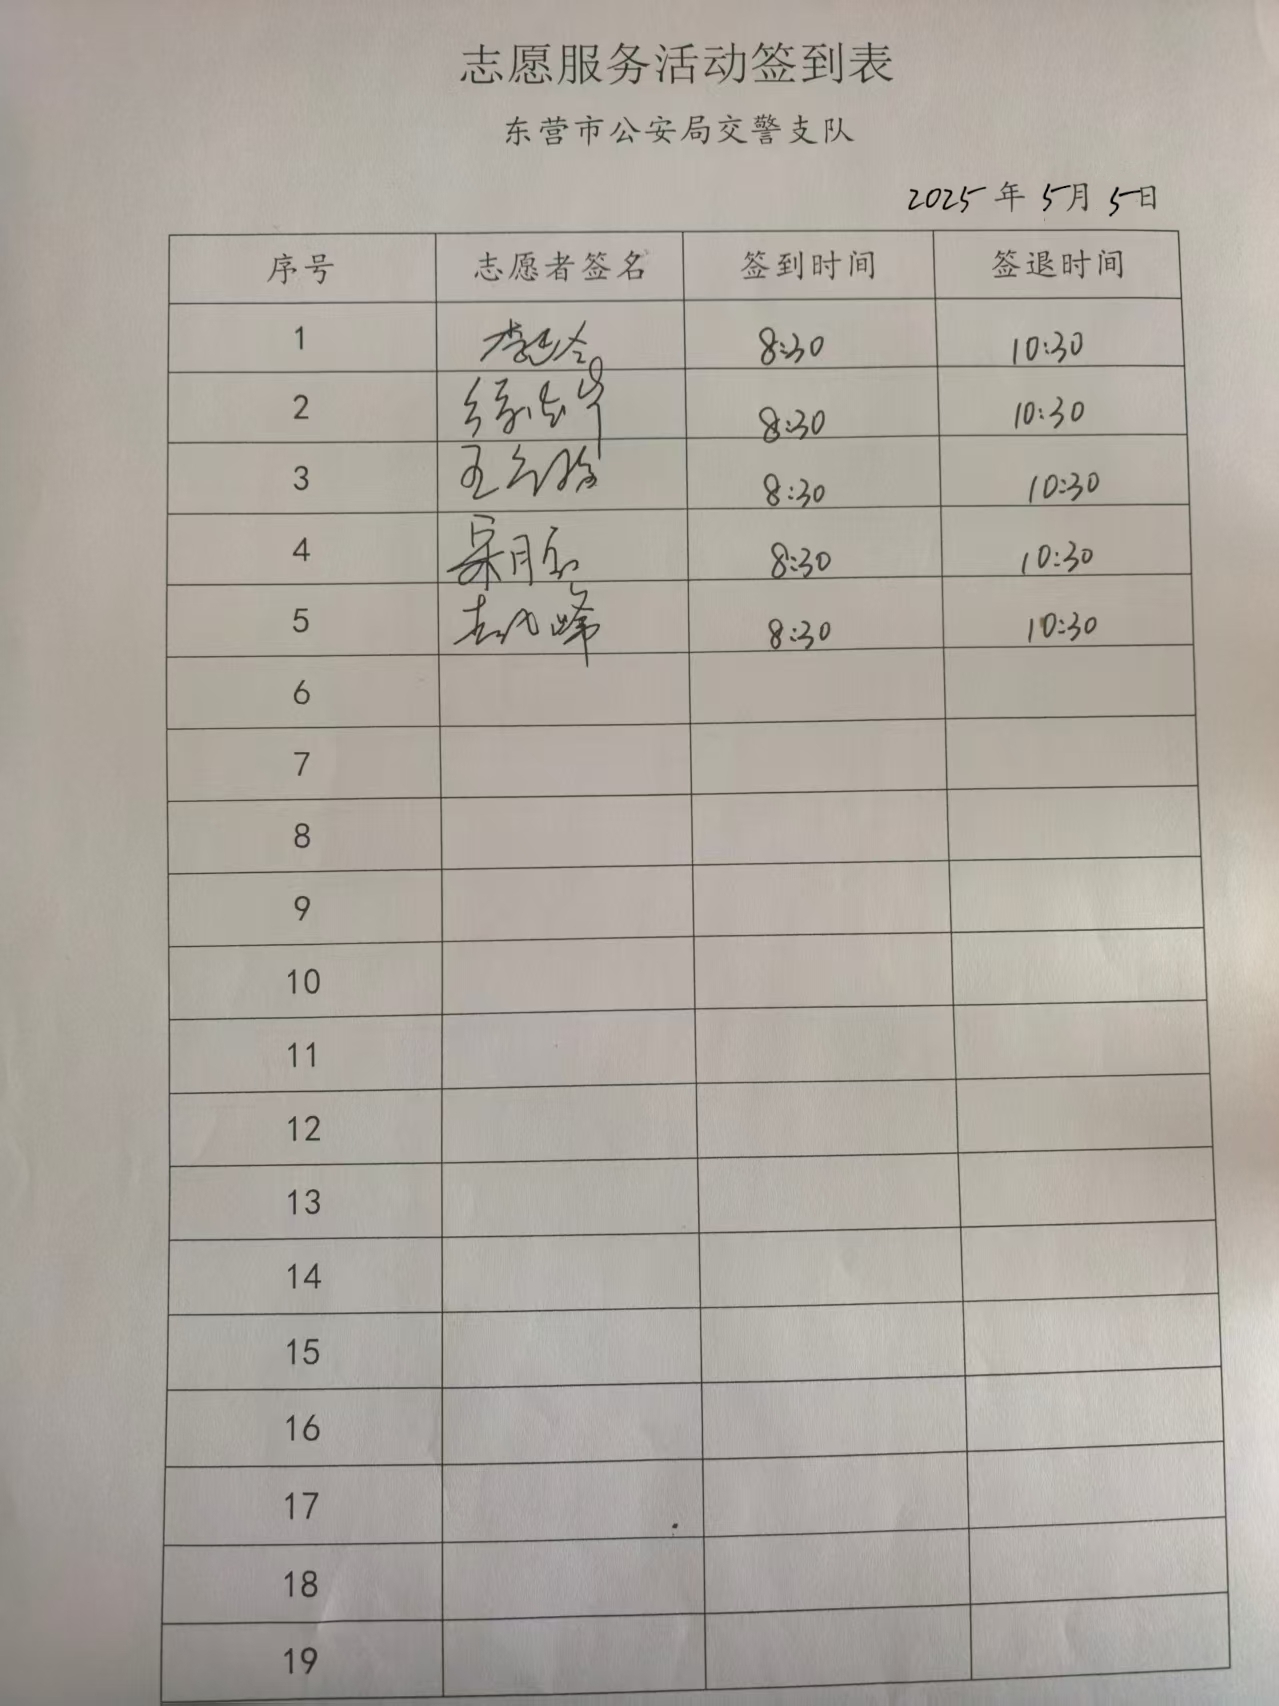 志愿服务活动签到表
东营市公安局交警支队
2025年5月5日
序号 志愿者签名 签到时间 签退时间
1 8:30 10:30
2 8:30 10:30
3 王 8:30 10:30
4 宋月 8:30 10:30
5 8:30 10:30
6
7
8
9
10
11
12
13
14
15
16
17
18
19